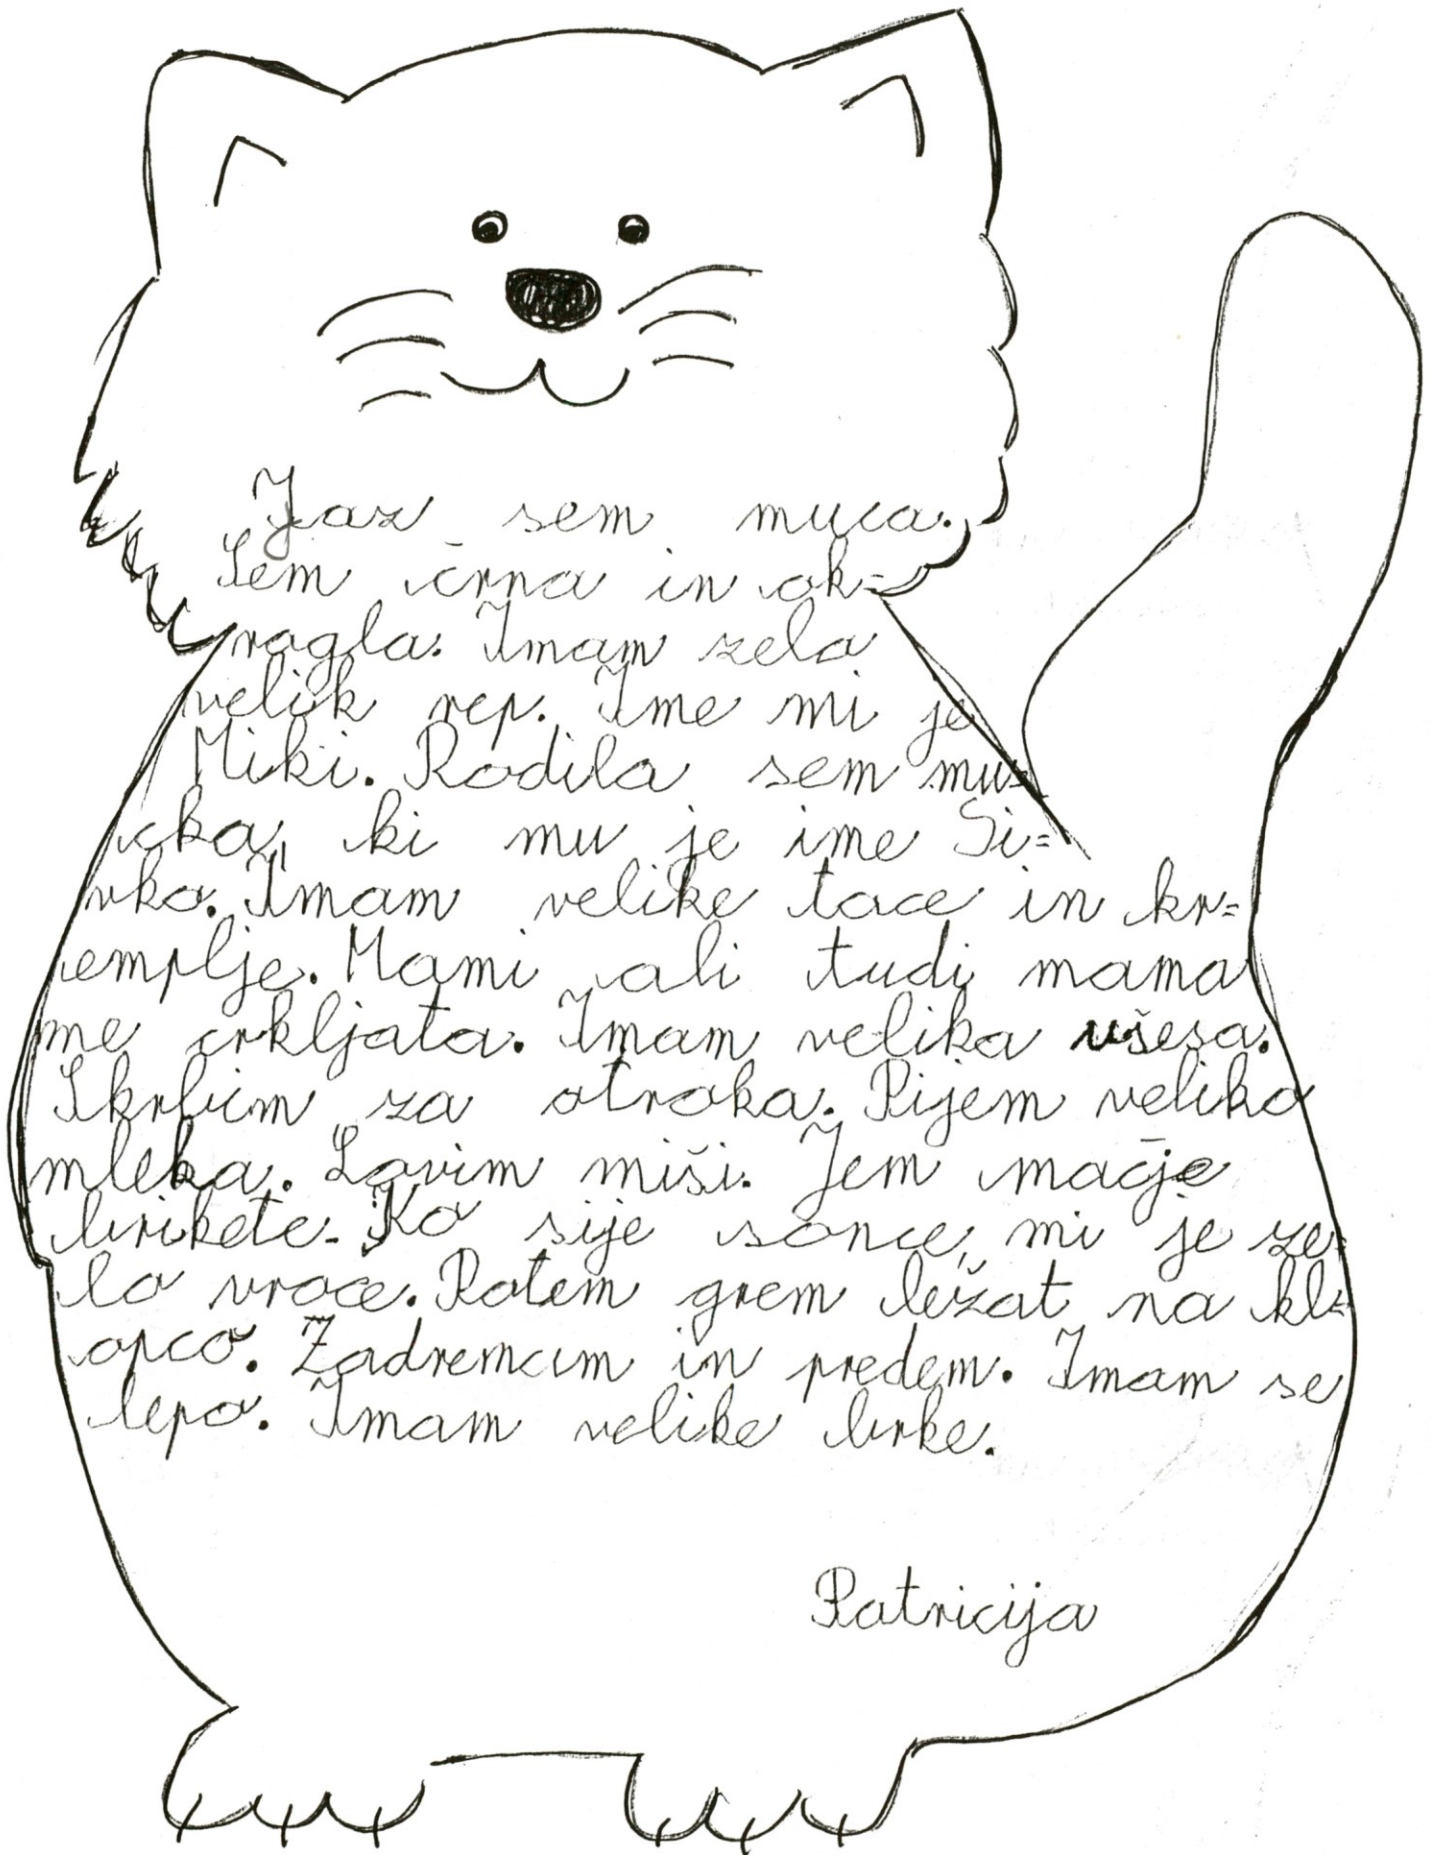 Jaz sem muca.
Sem črna in ok=
rogla. Imam zelo
velik rep. Ime mi je
Miki. Rodila sem mu=
cka, ki mu je ime Si=
vko. Imam velike tace in kr=
emplje. Mami ali tudi mama
me crkljata. Imam velika ušesa.
Skrbim za otroka. Pijem veliko
mleka. Lovim miši. Jem mačje
brikete. Ko sije sonce, mi je ze=
lo vroce. Potem grem ležat na kl=
opco. Zadremam in predem. Imam se
lepo. Imam velike brke.
Patricija